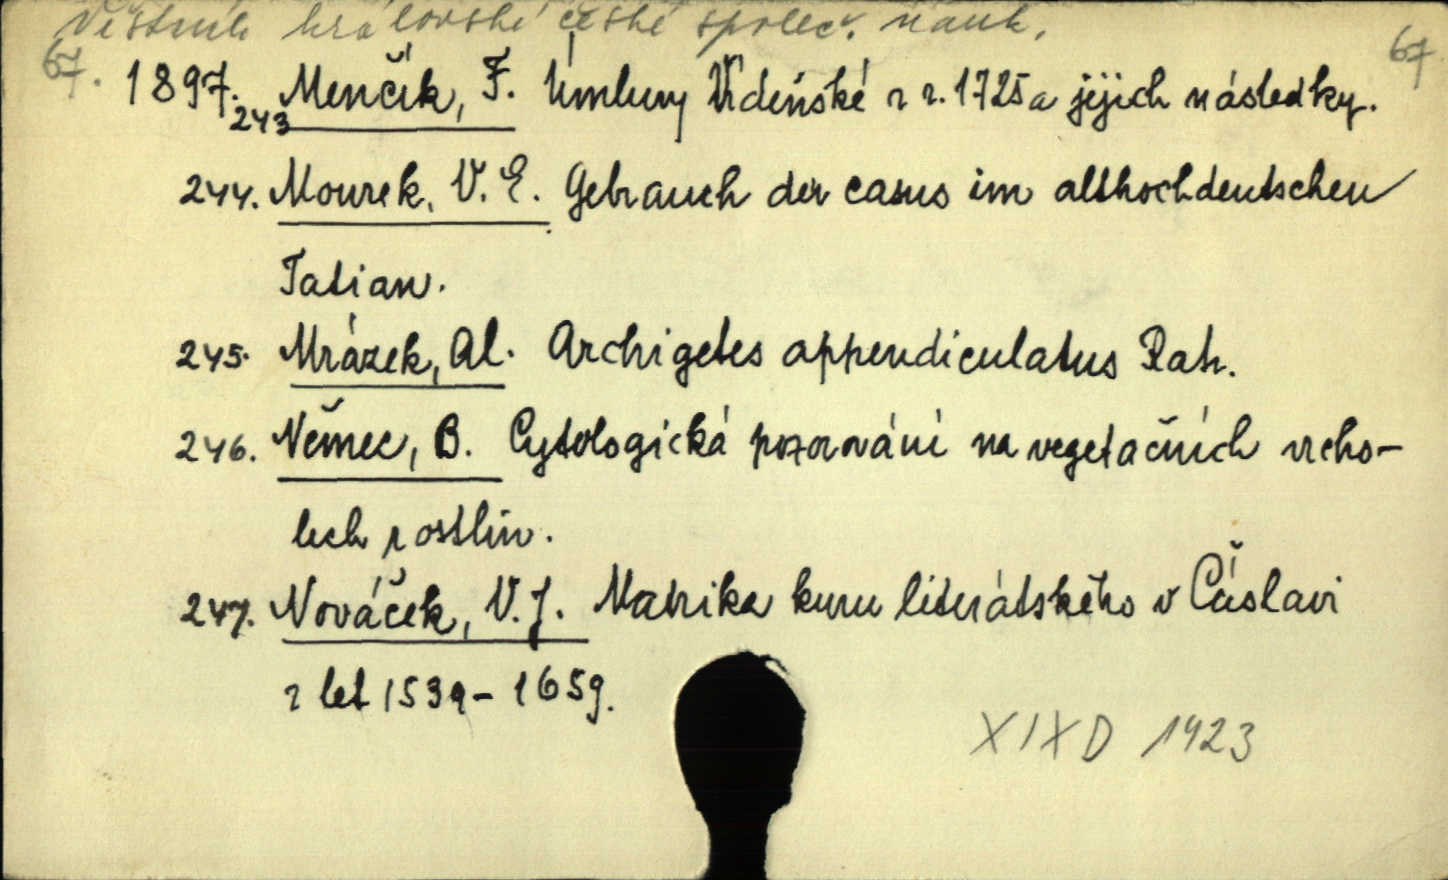 Věstník královské české společ. nauk.
67. 67
1897. Menčík, F. Úmluvy Vídeňské z r. 1725 a jejich následky.
243
244. Mourek, V. E. Gebrauch der casus im althochdeutschen
Tatian.
245. Mrázek, Al. Archigetes appendiculatus Ratz.
246. Němec, B. Cytologická pozorování na vegetačních vrcho-
lech rostlin.
247. Nováček, V. J. Matrika kuru literátského v Čáslavi
z let 1539-1659.
XIXD 1923